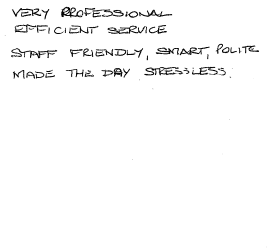 VERY PROFESSIONAL
EFFICIENT SERVICE
STAFF FRIENDLY, SMART, POLITE
MADE THE DAY STRESSLESS.